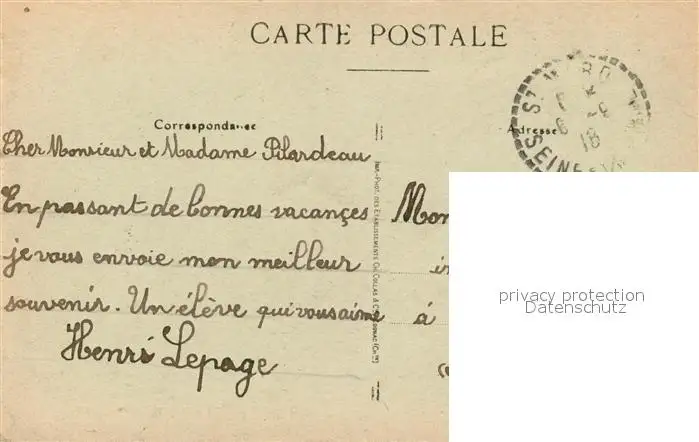 CARTE POSTALE
Correspondance
Adresse
Cher Monsieur et Madame Pilardeau
En passant de bonnes vacances
je vous envoie mon meilleur
souvenir. Un élève qui vous aime
Henri Lepage
Mon
à
IMP.-PHOT. DES ETABLISSEMENTS CH. COLLAS & Cie COGNAC (Chte)
ST
SEINE
18
privacy protection
Datenschutz